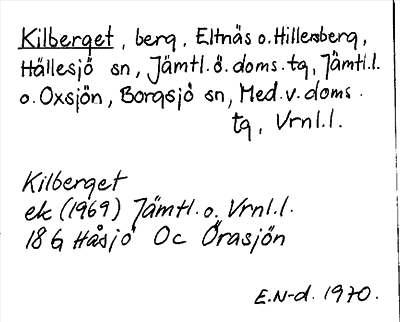 Kilberget, berg, Eltnäs o. Hillersberg,
Hällesjö sn, Jämtl.ö.doms.tg, Jämtl.l.
o. Oxsjön, Borgsjö sn, Med.v.doms.
tg, Vrnl.l.
Kilberget
ek (1969) Jämtl. o. Vrnl.l.
18 G Håsjö Oc Örasjön
E.N-d. 1970.